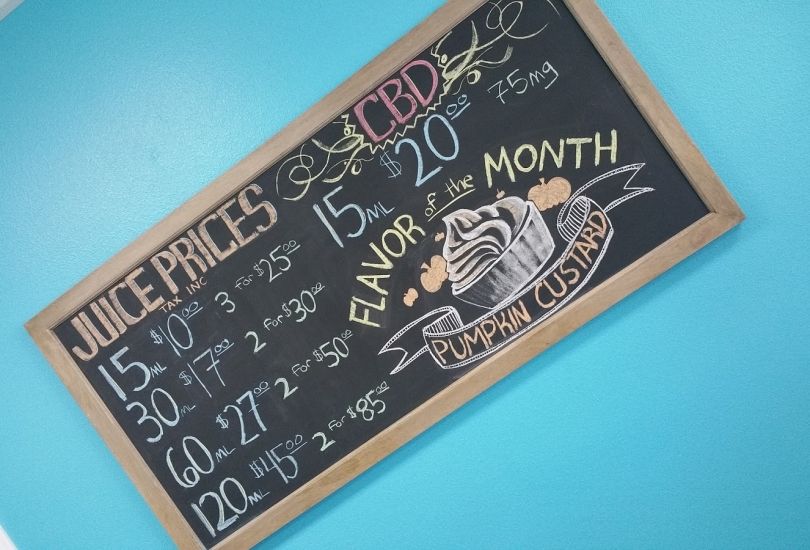 JUICE PRICES
TAX INC
15 ML $10.00 3 For $25.00
30 ML $17.00 2 For $30.00
60 ML $27.00 2 For $50.00
120 ML $45.00 2 For $85.00
CBD
15 ML $20.00 75mg
FLAVOR of the MONTH
PUMPKIN CUSTARD